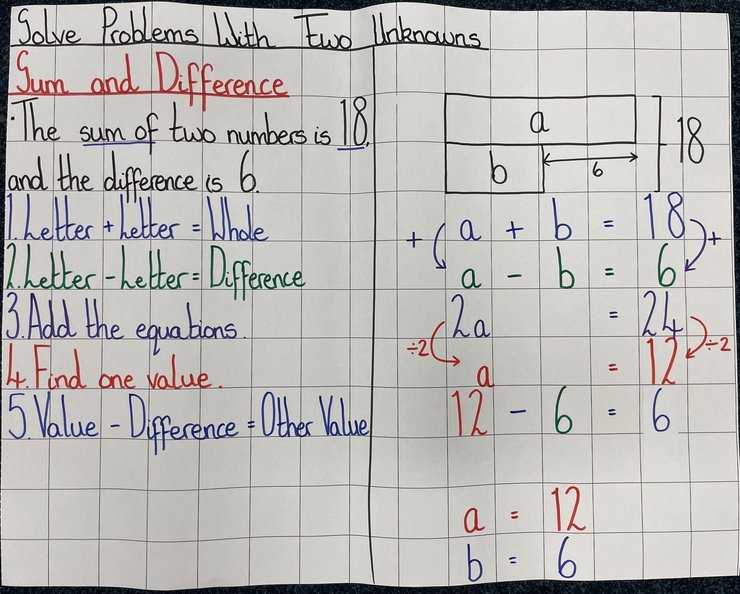 Solve Problems With Two Unknowns
Sum and Difference
·The sum of two numbers is 18,
and the difference is 6.
1.Letter + Letter = Whole
2.Letter - Letter = Difference
3.Add the equations.
4.Find one value.
5.Value - Difference = Other Value
a
b
6
18
+ a + b = 18 +
a - b = 6
2a = 24
÷2 a = 12 ÷2
12 - 6 = 6
a = 12
b = 6